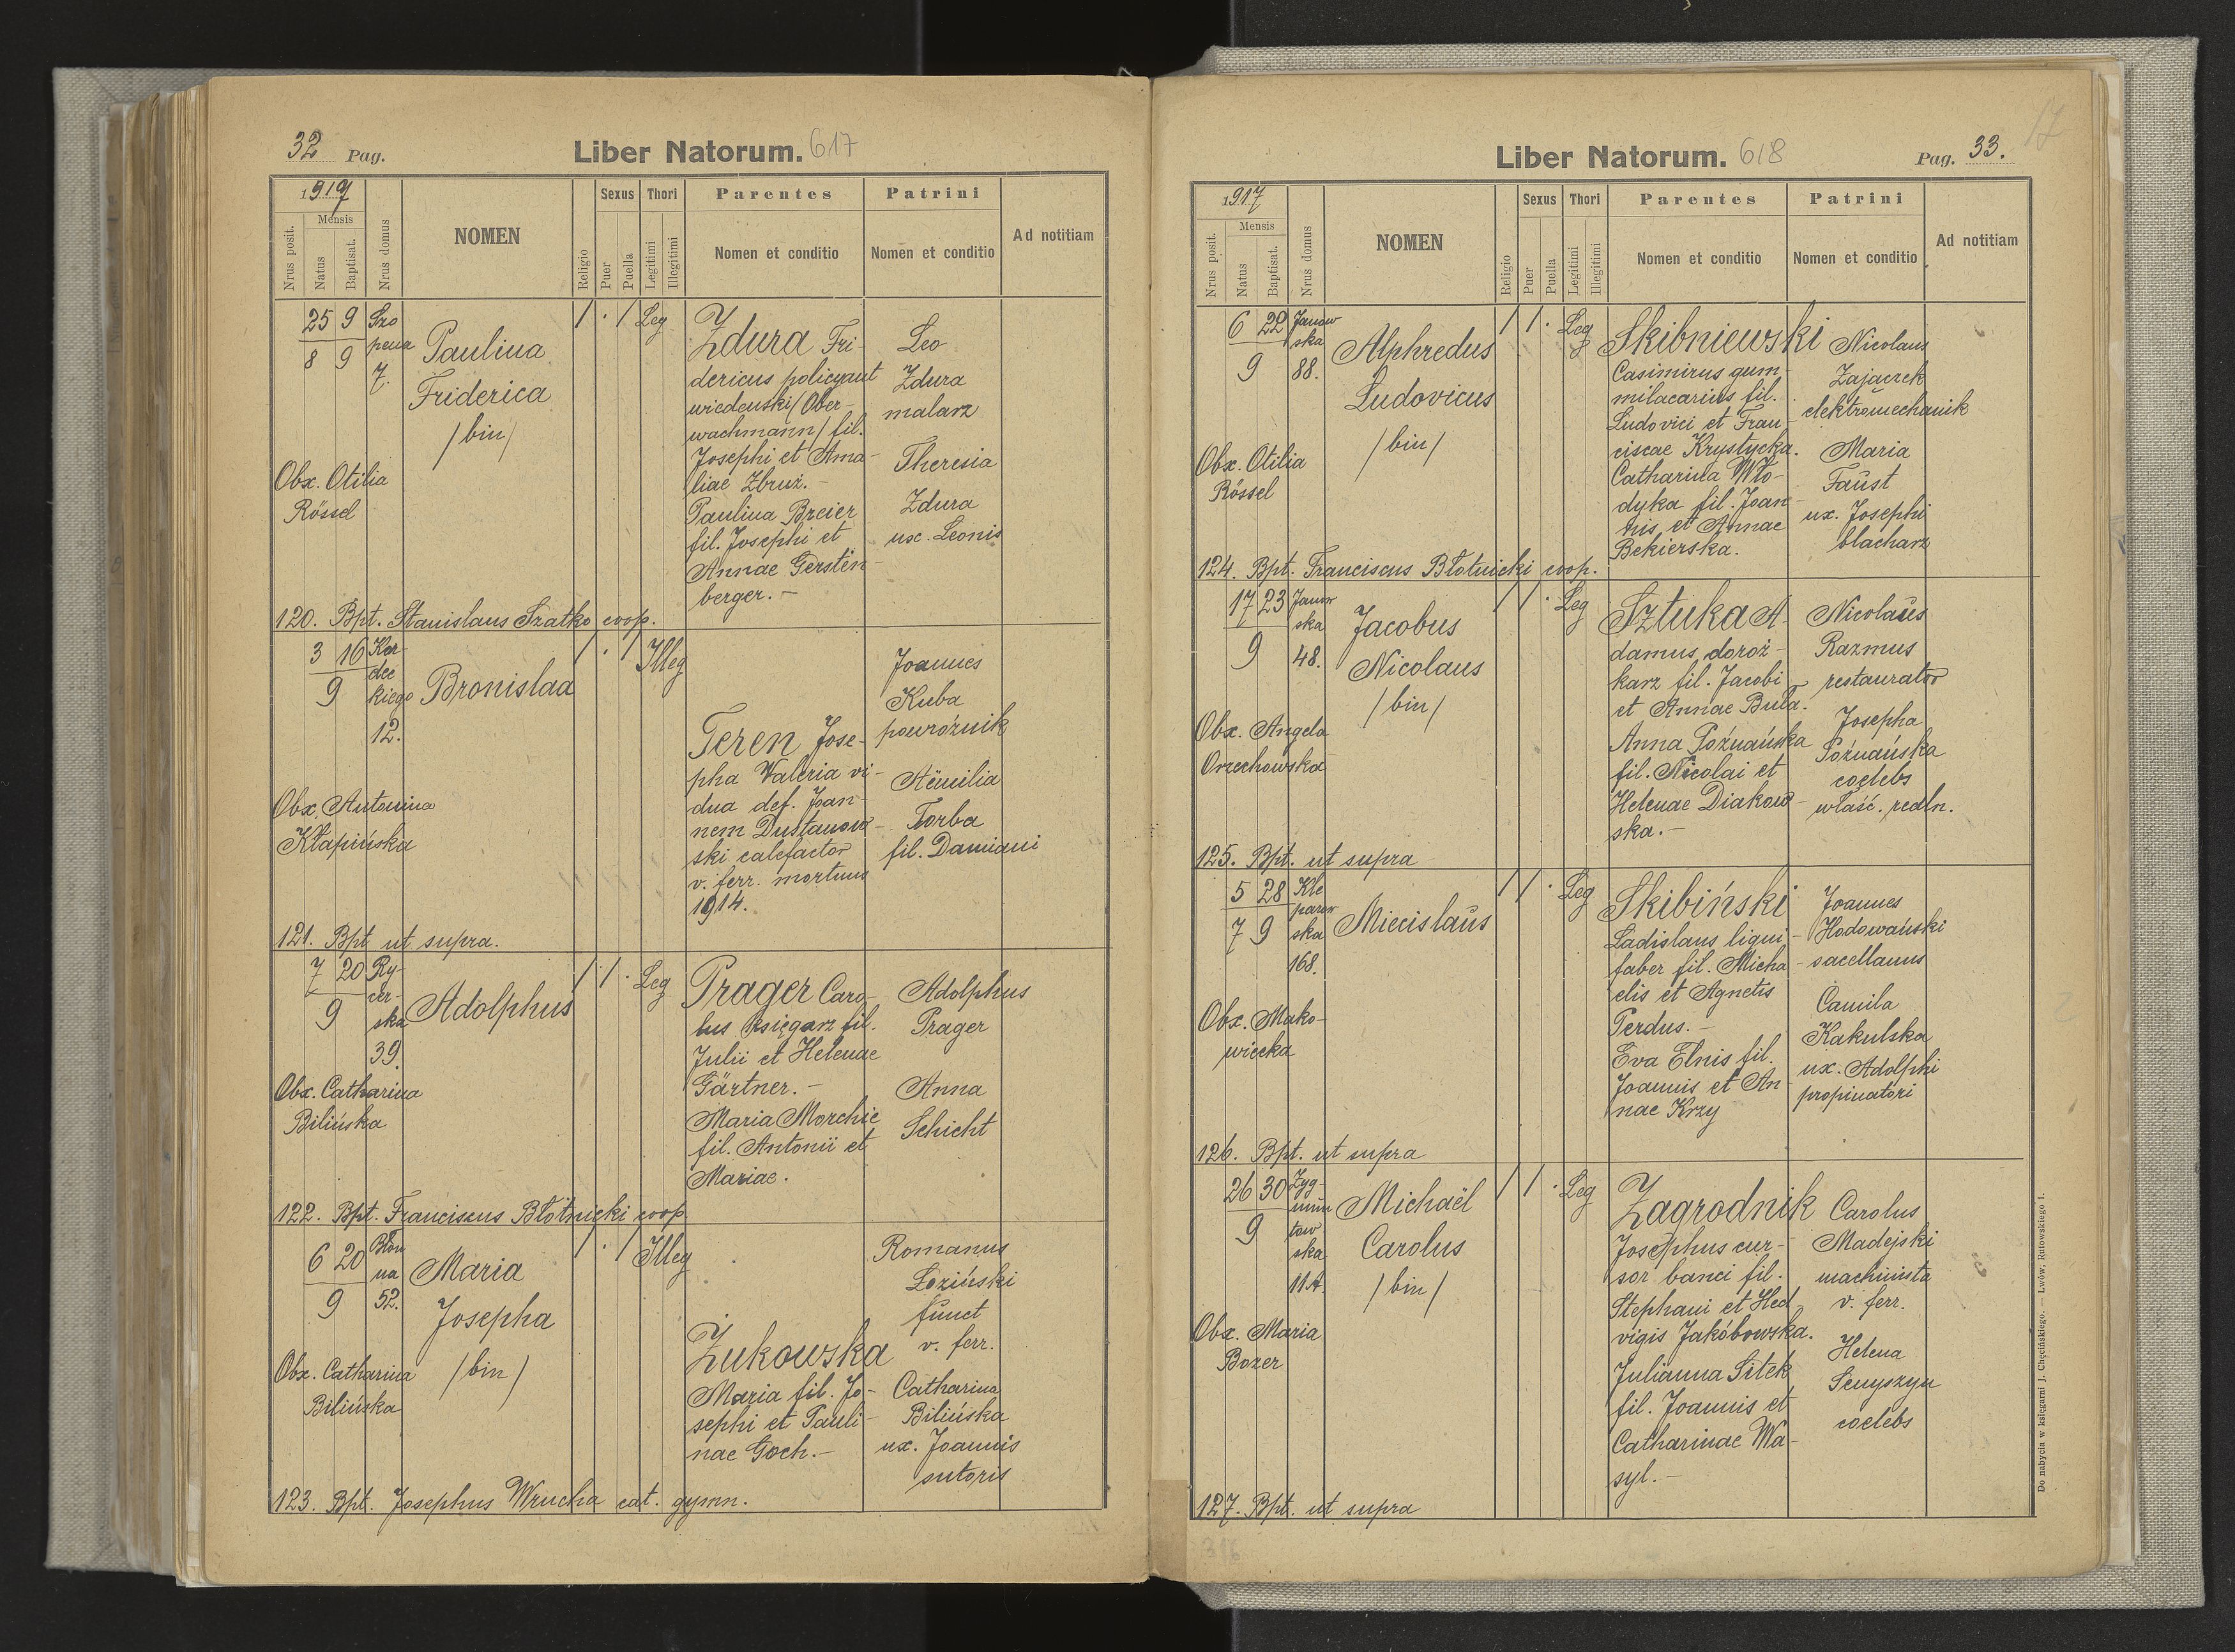 32 Pag.
Liber Natorum. 617
1917
Nrus posit.
Mensis
Natus
Baptisat.
Nrus domus
NOMEN
Religio
Sexus
Puer
Puella
Thori
Legitimi
Illegitimi
Parentes
Nomen et conditio
Patrini
Nomen et conditio
Ad notitiam
25 9
8 9
Szo
pena
7.
Paulina
Friderica
/bin/
Obx. Otilia
Rössel
/ . / Leg
Zdura Fri-
dericus policyant
wiedeński/Ober-
wachmann/fil.
Josephi et Ama-
liae Zbruż.-
Paulina Breier
fil. Josephi et
Annae Gersten-
berger.-
Leo
Zdura
malarz
Theresia
Zdura
ux. Leonis
120. Bpt. Stanislaus Szatko coop.
3 16
9
Kor-
dec
kiego
12.
Bronislaa
Obx. Antonina
Kłapińska
/ . / Illeg
Teren Jose-
pha Waleria vi-
dua def. Joan-
nem Dustanow-
ski calefactor
v. ferr. mortuus
1914.
Joannes
Kuba
powróźnik
Aemilia
Torba
fil. Damiani
121. Bpt ut supra.
7 20
9
Ry-
cer-
ska
39.
Adolphus
Obx. Catharina
Bilińska
/ / . Leg
Prager Caro-
lus księgarz fil.
Julii et Helenae
Gärtner.-
Maria Morchie
fil. Antonii et
Mariae.
Adolphus
Prager
Anna
Schicht
122. Bpt. Franciscus Błotnicki coop
6 20
9
Błon
na
52.
Maria
Josepha
/bin/
Obx. Catharina
Bilińska
/ . / Illeg
Żukowska
Maria fil. Jo-
sephi et Pauli-
nae Goch.-
Romanus
Łoziński
funct
v. ferr.
Catharina
Bilińska
ux. Joannis
sutoris
123. Bpt. Josephus Wrucha cat. gymn.
Liber Natorum. 618
Pag. 33.
17
1917
Nrus posit.
Mensis
Natus
Baptisat.
Nrus domus
NOMEN
Religio
Sexus
Puer
Puella
Thori
Legitimi
Illegitimi
Parentes
Nomen et conditio
Patrini
Nomen et conditio
Ad notitiam
6 22
9
Janow
ska
88.
Alphredus
Ludovicus
/bin/
Obx. Otilia
Rössel
/ / . Leg
Skibniewski
Casimirus gum-
milacarius fil.
Ludovici et Fran-
ciscae Krystycka.
Catharina Wło-
dyka fil. Joan-
nis et Annae
Bekierska.
Nicolaus
Zajaczek
elektromechanik
Maria
Faust
ux. Josephi
blacharz
124. Bpt. Franciscus Błotnicki coop.
17 23
9
Janow
ska
48.
Jacobus
Nicolaus
/bin/
Obx. Angela
Orzechowska
/ / . Leg
Sztuka A-
damus doroż-
karz fil. Jacobi
et Annae Buła.
Anna Poźnańska
fil. Nicolai et
Helenae Diakow-
ska.-
Nicolaus
Razmus
restaurator
Josepha
Poźnańska
coelebs
właść. realn.
125. Bpt. ut supra
5 28
7 9
Kle
parow
ska
168.
Miecislaus
Obx. Mako-
wiecka
/ / . Leg
Skibiński
Ladislaus ligni-
faber fil. Micha-
elis et Agnetis
Perdus.-
Eva Elnis fil.
Joannis et An-
nae Krzy
Joannes
Hodowański
sacellanus
Camila
Kakulska
ux. Adolphi
propinatori
126. Bpt. ut supra
26 30
9
Zyg-
mun
tow
ska
11A.
Michaël
Carolus
/bin/
Obx. Maria
Bozer
/ / . Leg
Zagrodnik
Josephus cur-
sor banci fil.
Stephani et Hed
vigis Jakóbowska.
Julianna Sitek
fil. Joannis et
Catharinae Wa-
syl.-
Carolus
Madejski
machinista
v. ferr.
Helena
Senyszyn
coelebs
127. Bpt. ut supra
316
Do nabycia w księgarni J. Chęcińskiego. — Lwów, Rutowskiego 1.